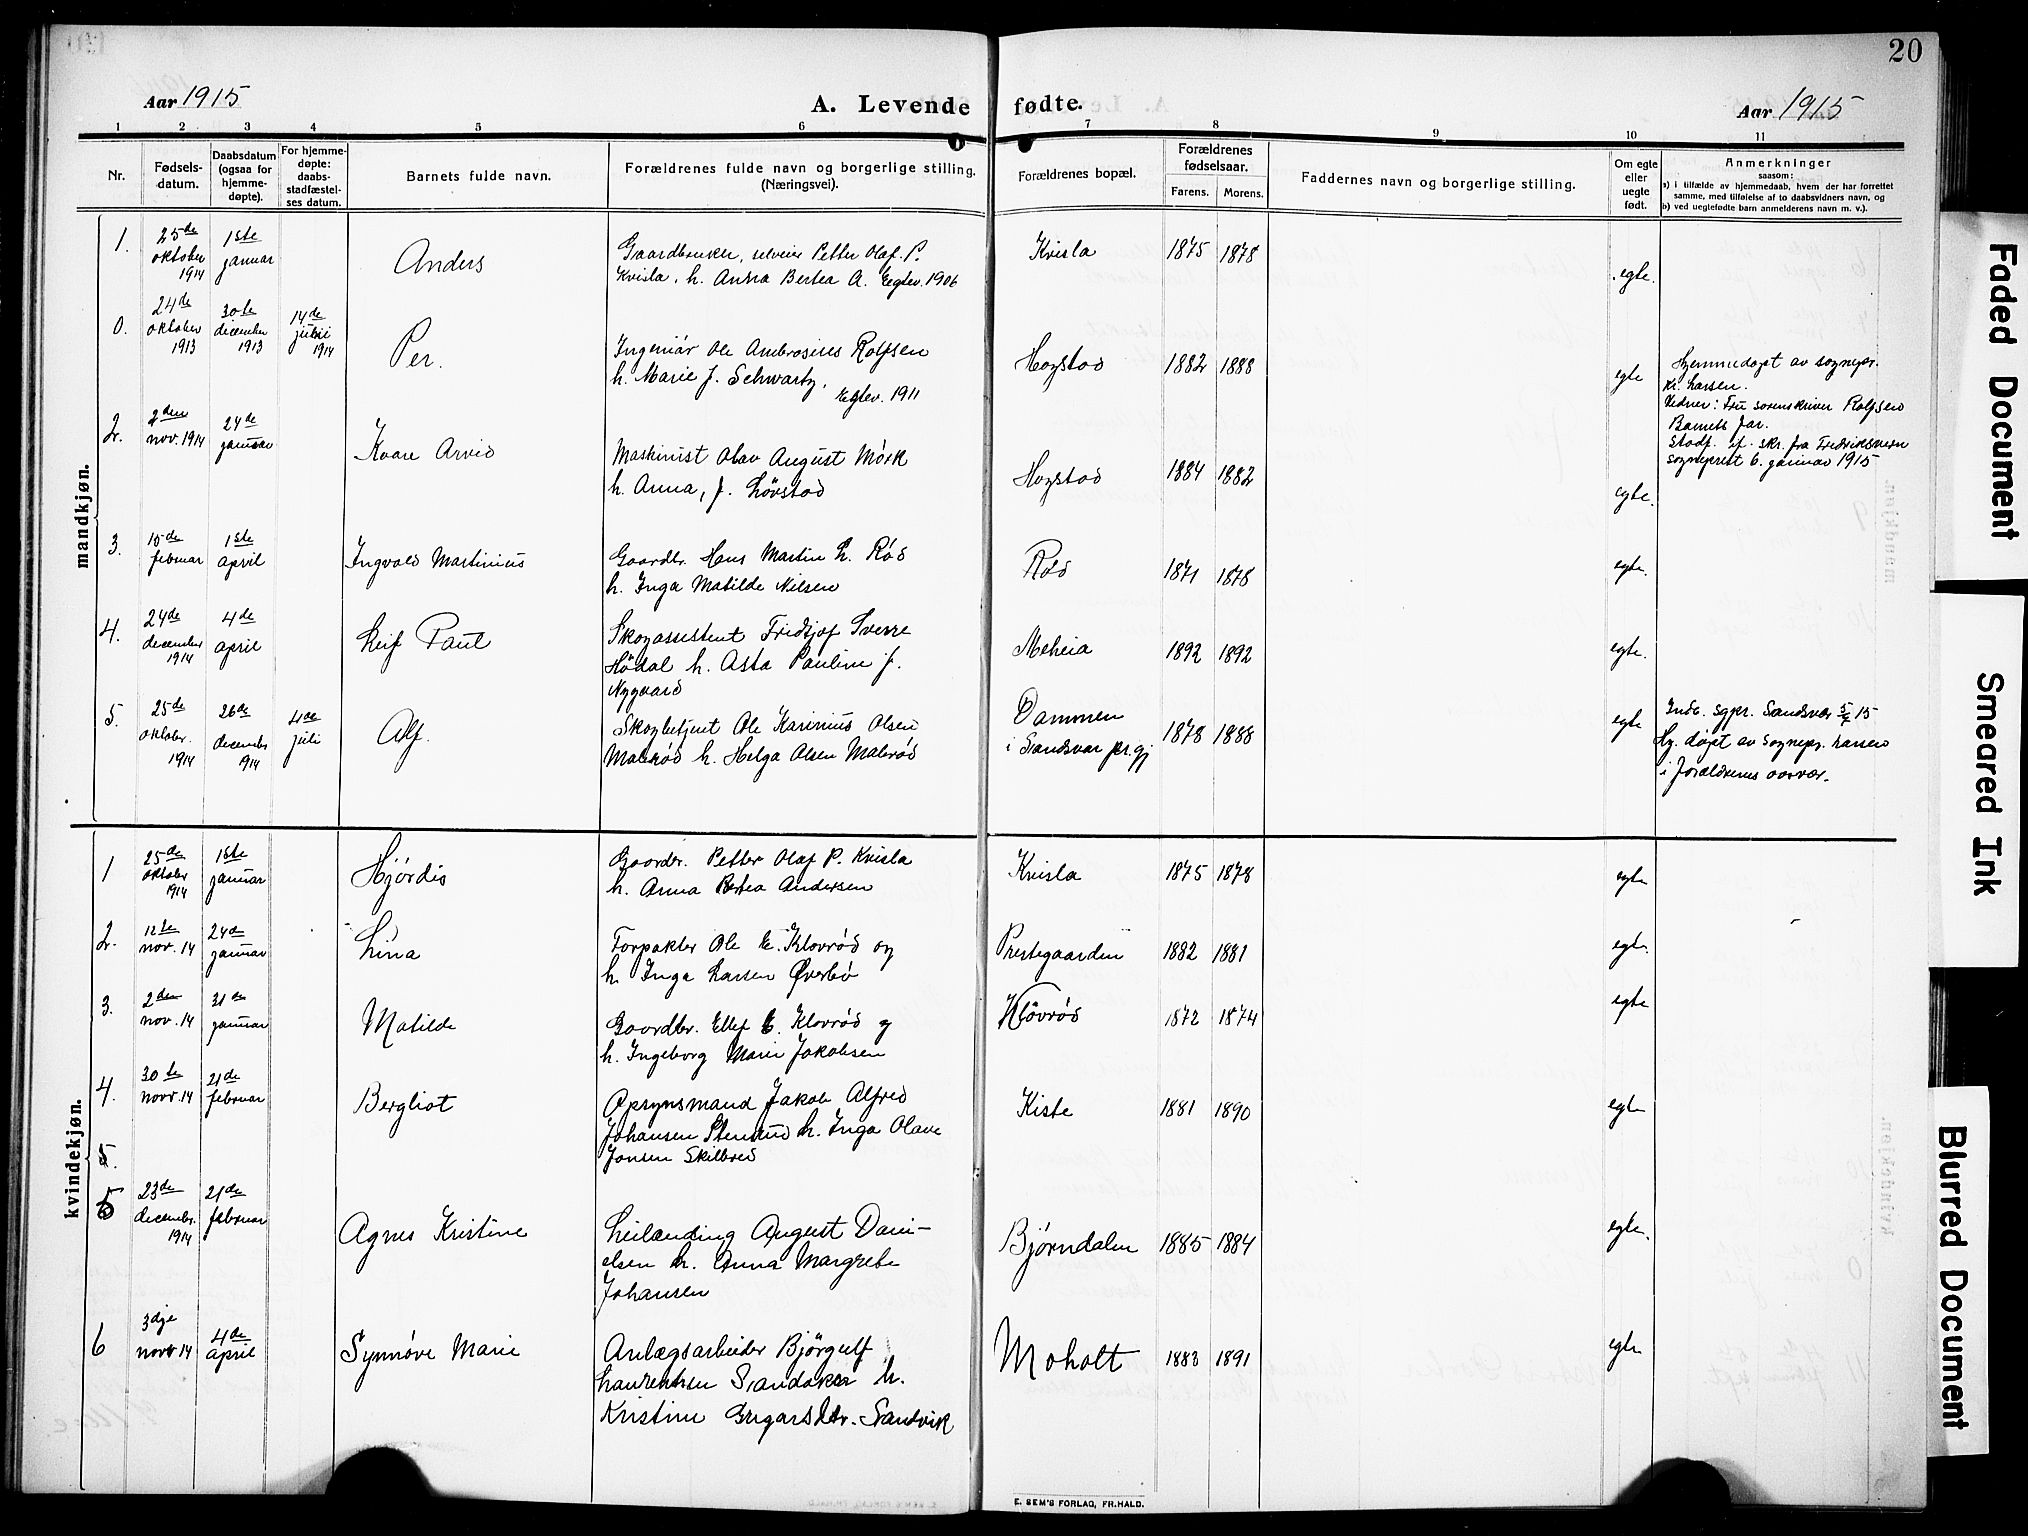 20
Aar 1915
A. Levende fødte.
Aar 1915
1 2 3 4 5 6 7 8 9 10 11
Nr.
Fødsels-
datum.
Daabsdatum
(ogsaa for
hjemme-
døpte).
For hjemme-
døpte:
daabs-
stadfæstel-
ses datum.
Barnets fulde navn.
Forældrenes fulde navn og borgerlige stilling.
(Næringsvei).
Forældrenes bopæl.
Forældrenes
fødselsaar.
Farens. Morens.
Faddernes navn og borgerlige stilling.
Om egte
eller
uegte
født.
Anmerkninger
saasom:
a) i tilfælde av hjemmedaab, hvem der har forrettet
samme, med tilføielse af to daabsvidners navn, og
b) ved uegtefødte barn anmelderens navn m. v.).
mandkjøn.
1.
25de
oktober
1914
1ste
januar
Anders
Gaardbruker, selveier Petter Olaf P.
Kvisla, h. Anna Bertea A. Egtev. 1906
Kvisla
1875 1878
egte.
0.
24de
oktober
1913
30te
december
1913
14de
juni
1914
Per.
Ingeniør Ole Ambrosius Rolfsen
h. Marie f. Schwartz,
Egtev. 1911
Hogstad
1882 1888
egte
Hjemmedøpt av sognepr.
Kr. Larsen.
Vidner: Fru sorenskriver Rolfsen
Barnets far.
Stadf. if. skr. fra Fredriksvern
sogneprest 6. januar 1915
2.
2den
nov. 1914
24de
januar
Kaare Arvid
Maskinist Olav August Mørk
h. Anna, f. Løvstad
Hogstad
1884 1882
egte.
3.
15de
februar
1ste
april
Ingvald Martinius
Gaardbr. Hans Martin L. Rød
h. Inga Matilde Nilsen
Rød
1871 1878
egte.
4.
24de
december
1914
4de
april
Leif Paul
Skogassistent Fridtjof Sverre
Hødal h. Asta Pauline f.
Nygaard
Meheia
1892 1892
egte.
5.
25de
oktober.
1914
26de
december
1914
4de
juli
Alf.
Skogbetjent Ole Karinius Olsen
Malerød h. Helga Olsen Malerød
Dammen
i Sandsvær pr.gj
1878 1888
egte
Indb. sgpr. Sandsvær 15
Hj. døpt av sognepr. Larsen
i forældrenes nærvær.
kvindekjøn.
1
25de
oktober
1914
1ste
januar
Hjørdis
Gaardbr. Petter Olaf P. Kvisla
h. Anna Bertea Andersen
Kvisla
1875 1878
egte
2.
12te
nov. 14
24de
januar
Lina
Forpakter Ole E. Klovrød og
h. Inga Larsen Øverbø
Prestegaarden
1882 1881
egte.
3.
2den
nov. 14
31de
januar
Matilde
Gaardbr. Ellef E. Klovrød og
h. Ingeborg Marie Jakobsen
Kløvrød
1872 1874
egte
4.
30te
nov. 14
21de
februar
Bergliot
Opsynsmand Jakob Alfred
Johansen Stensrud h. Inga Olave
Jonsen Skilbred
Kiste
1881 1890
egte
5.
5
23de
decembr.
1914
21de
februar
Agnes Kristine
Leilending August Dani-
elsen h. Anna Margrete
Johansen
Bjørndalen
1885 1884
egte.
6
3dje
nov. 14
4de
april
Synnøve Marie
Anlægsarbeider Bjørgulf
Laurentsen Sandaker h.
Kristine Sandvik
Moholt
1883 1891
egte
E. SEM'S FORLAG, FR.HALD.
Faded Document
Smeared Ink
Blurred Document